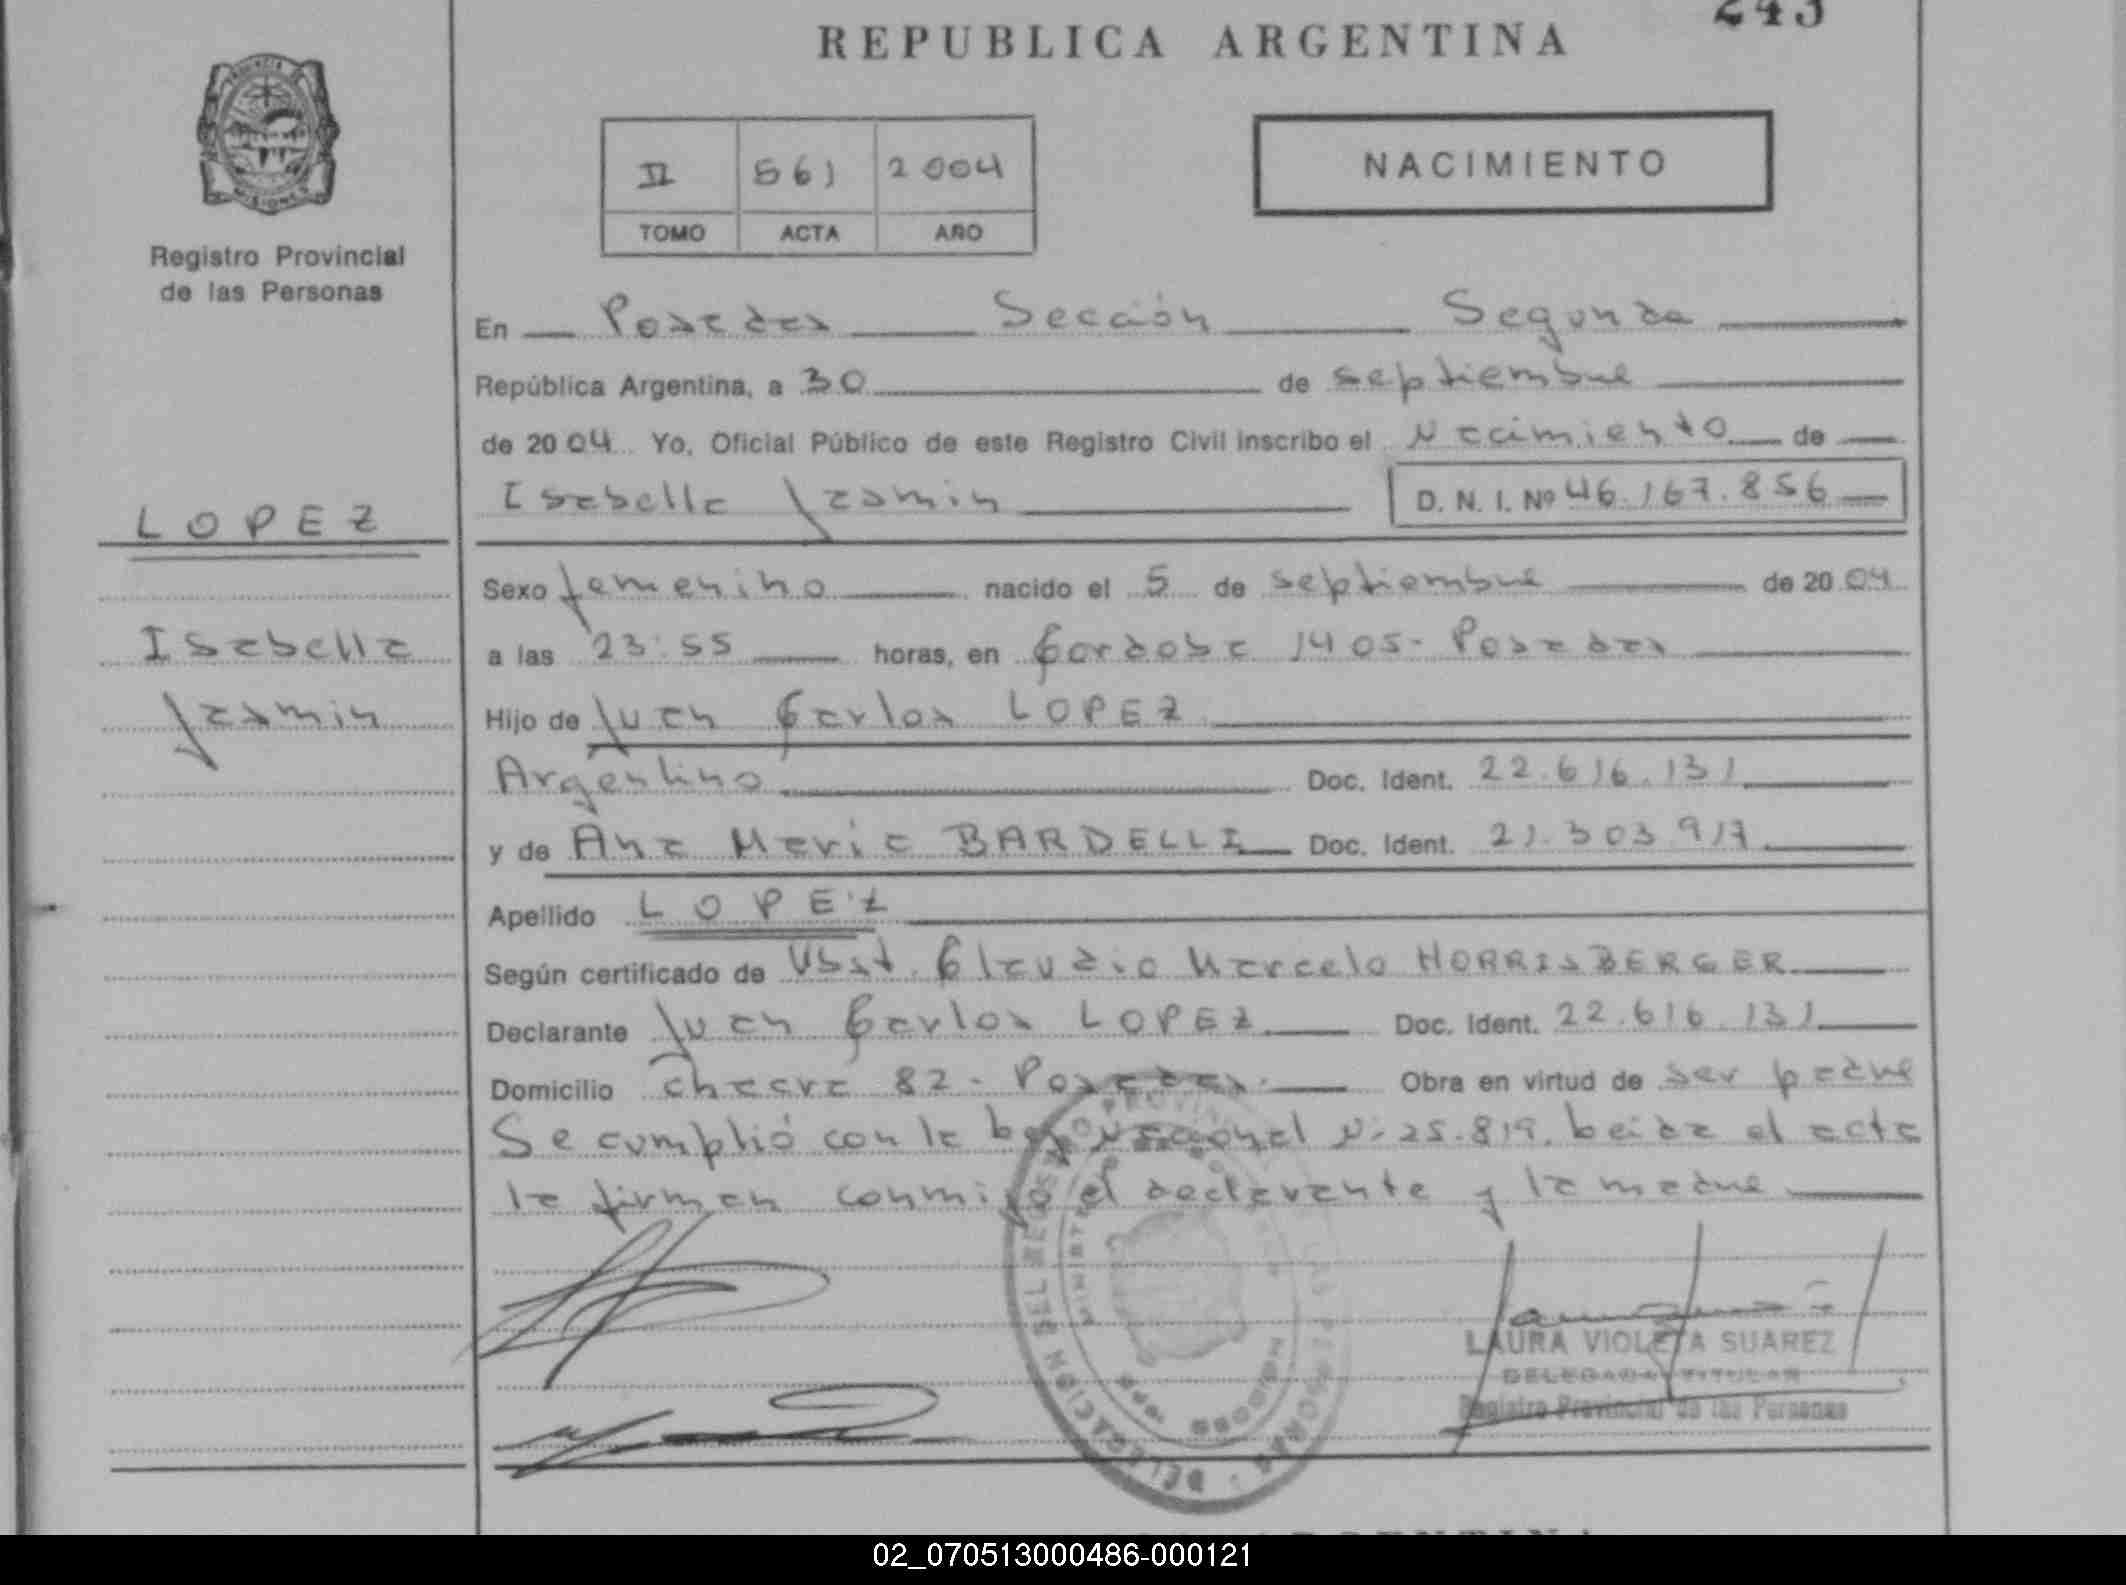 243
REPUBLICA ARGENTINA
II 561 2004
TOMO ACTA AÑO
NACIMIENTO
PROVINCIA DE
MISIONES
Registro Provincial
de las Personas
En Posadas Sección Segunda
República Argentina, a 30 de septiembre
de 2004 Yo, Oficial Público de este Registro Civil inscribo el Nacimiento de
Isabella Jasmin D. N. I. Nº 46.167.856
LOPEZ
Isabella
Jasmin
Sexo femenino nacido el 5 de septiembre de 2004
a las 23:55 horas, en Cordoba 1405- Posadas
Hijo de Juan Carlos LOPEZ
Argentino Doc. Ident. 22.616.131
y de Ana Maria BARDELLI Doc. Ident. 21.303.917
Apellido LOPEZ
Según certificado de Obst. Claudio Marcelo HORRISBERGER
Declarante Juan Carlos LOPEZ Doc. Ident. 22.616.131
Domicilio 82- Posadas. Obra en virtud de ser padre
Se cumplió con la Ley Nacional Nº 25.819. Leida el acta
la firman conmigo el declarante y la madre
LAURA VIOLETA SUAREZ
DELEGADA TITULAR
Registro Provincial de las Personas
02_070513000486-000121